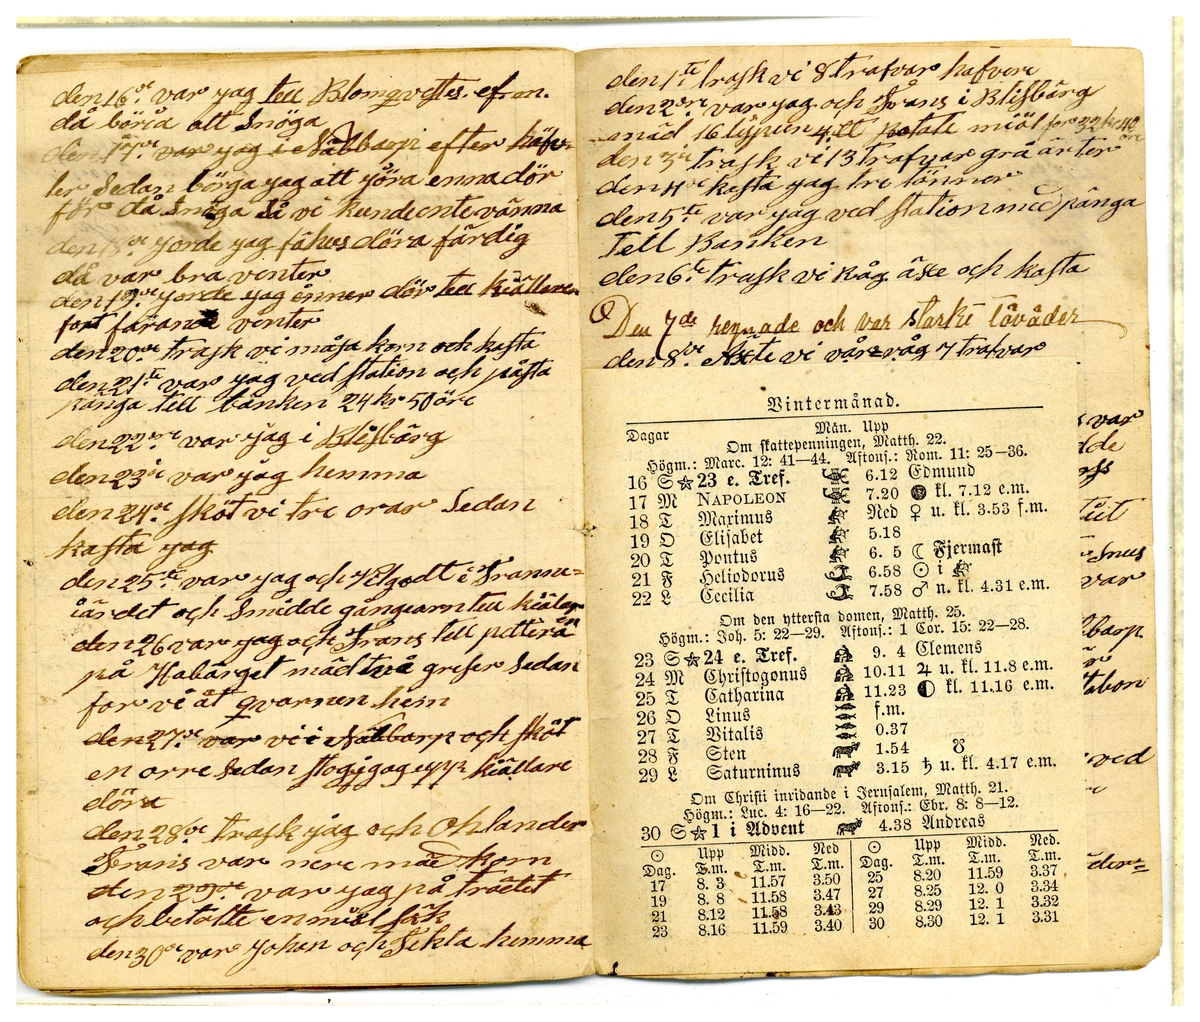 den 16de var yag tell Blomqvistes. ef em.
då böria att Snöga
den 17de var yag i Näbbarp efter
ler Sedan börga yag att yöra enna dör
för då Snöga Så vi kunde ente vänna
den 18de yorde yag fähus döra färdig
då var bra venter
den 19de yorde yag änner dör tell kiällaren
fort farane venter
den 20de trask vi måsa korn och kasta
den 21te var yag ved station och påsta
pänga tell banken 24 kr 50 öre
den 22dre var yag i Blisbärg
den 23de var yag hemma
den 24de sköt vi tre orar Sedan
kasta yag
den 25te var yag och Helgodt i Frannu=
iärdet och Smidde gångearn tell kiälaren
den 26 var yag och Frans tell petterä
på Habärget mäd två greser Sedan
for vi åt qvarnen hem
den 27de var vi i Näbbarp och sköt
en orre Sedan slog yag upp kiällare
döra
den 28de trask yag och Ohlander
Frans var nere mäd korn
den 29de var yag på träetet
och betalte en miöl säk
den 30de var Johan och Tekla hemma
den 1te trask vi 8 trafvar hafvere
den 2dre var yag och Frans i Blisbärg
mäd 16 lispun 4 tt potate miöl for 32 kr 40 öre
den 3de trask vi 13 trafvar grå ärter
den 4de kasta yag tre tönner
den 5te var yag ved station med pänga
tell Banken
den 6te trask vi råg äxe och kasta
Den 7de regnade och var starkt töväder
den 8de Äxte vi vår råg 7 trafvar
Vintermånad.
Dagar Mån. Upp
Om skattepenningen, Matth. 22.
Högm.: Marc. 12: 41—44. Aftons.: Rom. 11: 25—36.
16 S ☆ 23 e. Tref. 6.12 Edmund
17 M NAPOLEON 7.20 kl. 7.12 e.m.
18 T Maximus Ned ♀ u. kl. 3.53 f.m.
19 O Elisabet 5.18
20 T Pontus 6. 5 ☾ Fjermast
21 F Heliodorus 6.58 ☉ i
22 L Cecilia 7.58 ♂ n. kl. 4.31 e.m.
Om den yttersta domen, Matth. 25.
Högm.: Joh. 5: 22—29. Aftons.: 1 Cor. 15: 22—28.
23 S ☆ 24 e. Tref. 9. 4 Clemens
24 M Christogonus 10.11 ♃ u. kl. 11.8 e.m.
25 T Catharina 11.23 ◐ kl. 11.16 e.m.
26 O Linus f.m.
27 T Vitalis 0.37
28 F Sten 1.54 ☋
29 L Saturninus 3.15 ♄ u. kl. 4.17 e.m.
Om Christi inridande i Jerusalem, Matth. 21.
Högm.: Luc. 4: 16—22. Aftons.: Ebr. 8: 8—12.
30 S ☆ 1 i Advent 4.38 Andreas
☉ Upp Midd. Ned ☉ Upp Midd. Ned.
Dag. F.m. T.m. T.m. Dag. T.m. T.m. T.m.
17 8. 3 11.57 3.50 25 8.20 11.59 3.37
19 8. 8 11.58 3.47 27 8.25 12. 0 3.34
21 8.12 11.58 3.43 29 8.29 12. 1 3.32
23 8.16 11.59 3.40 30 8.30 12. 1 3.31
var
Snus
var
tation
ved